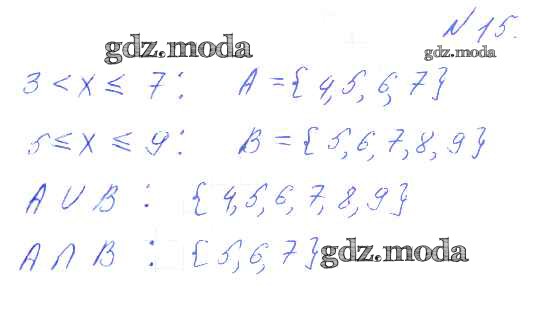 № 15.
gdz.moda
gdz.moda
3 < x ≤ 7 : A = {4, 5, 6, 7}
5 ≤ x ≤ 9 : B = {5, 6, 7, 8, 9}
A ∪ B : {4, 5, 6, 7, 8, 9}
A ∩ B : {5, 6, 7}
gdz.moda